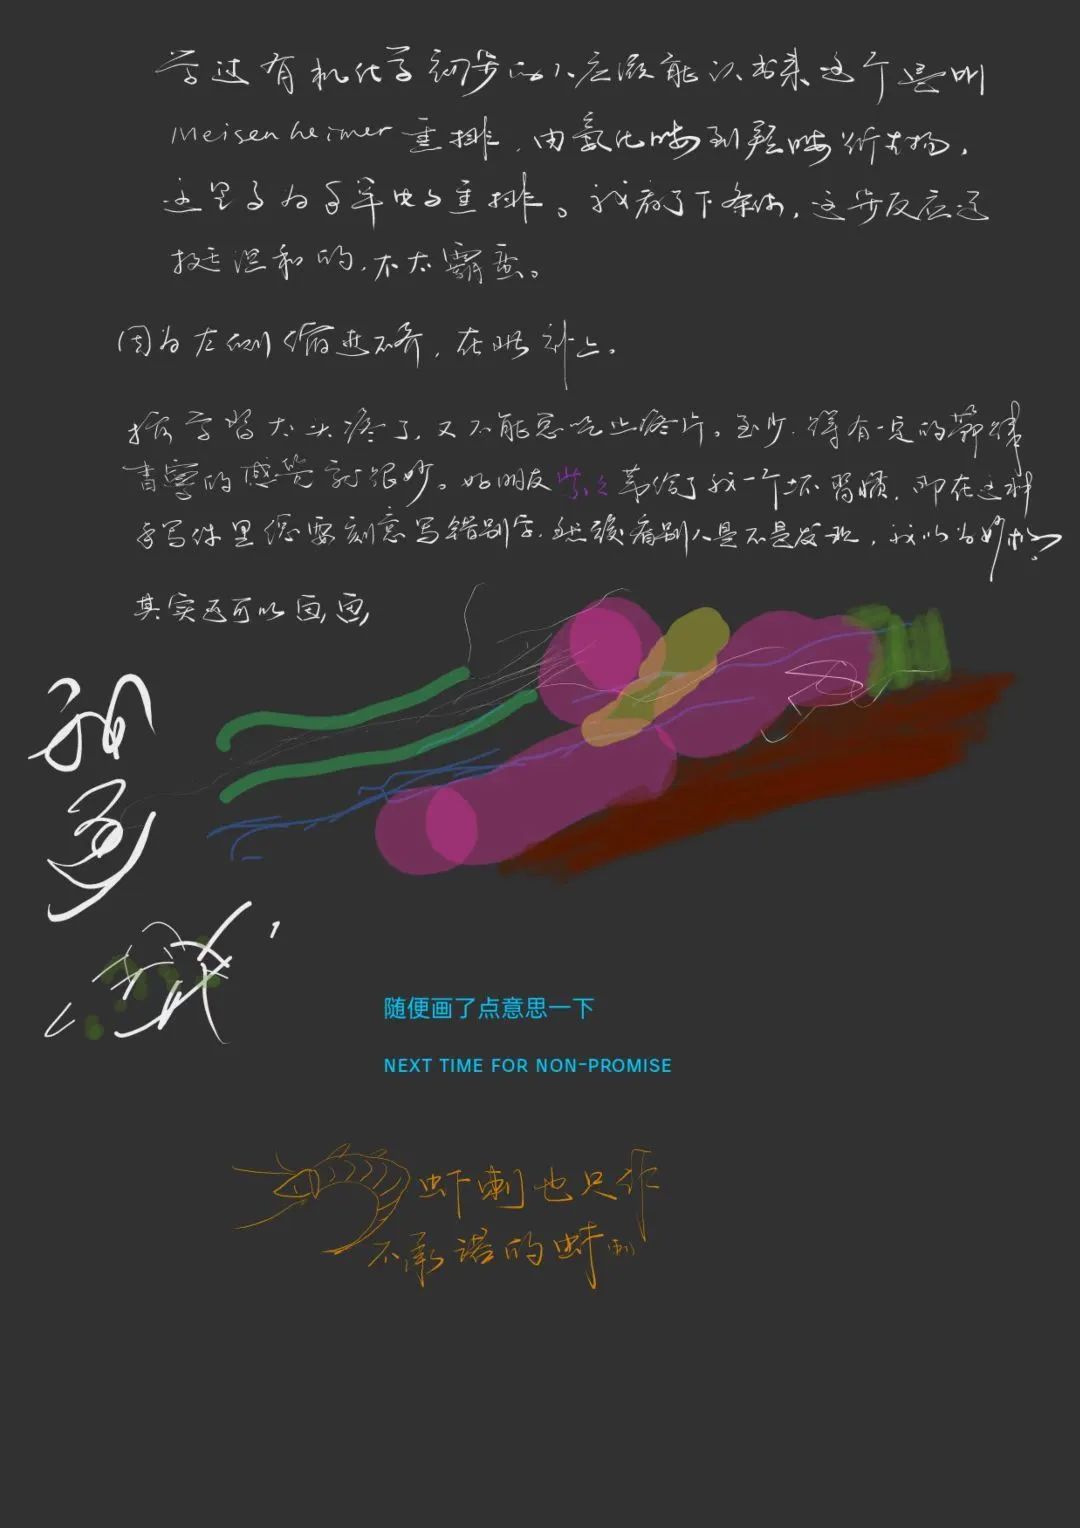 学过有机化学初步的人应该能认出来这个是叫
Meisenheimer重排，由氧化胺到羟胺衍生物，
这里了为了单电子重排。我看了下条件，这步反应还
挺温和的，不太霸蛮。
因为左侧缩进不齐，在此补上。
搞学习太头疼了，又不能总吃止疼片。至少，得有一定的节律
书写的感觉就很妙。好朋友紫 弟给了我一个坏习惯，即在这种
手写件里您要刻意写错别字，然后看别人是不是发现，我以为妙极。
其实还可以画画
随便画了点意思一下
NEXT TIME FOR NON-PROMISE
虾喇也只作
不承诺的虾喇